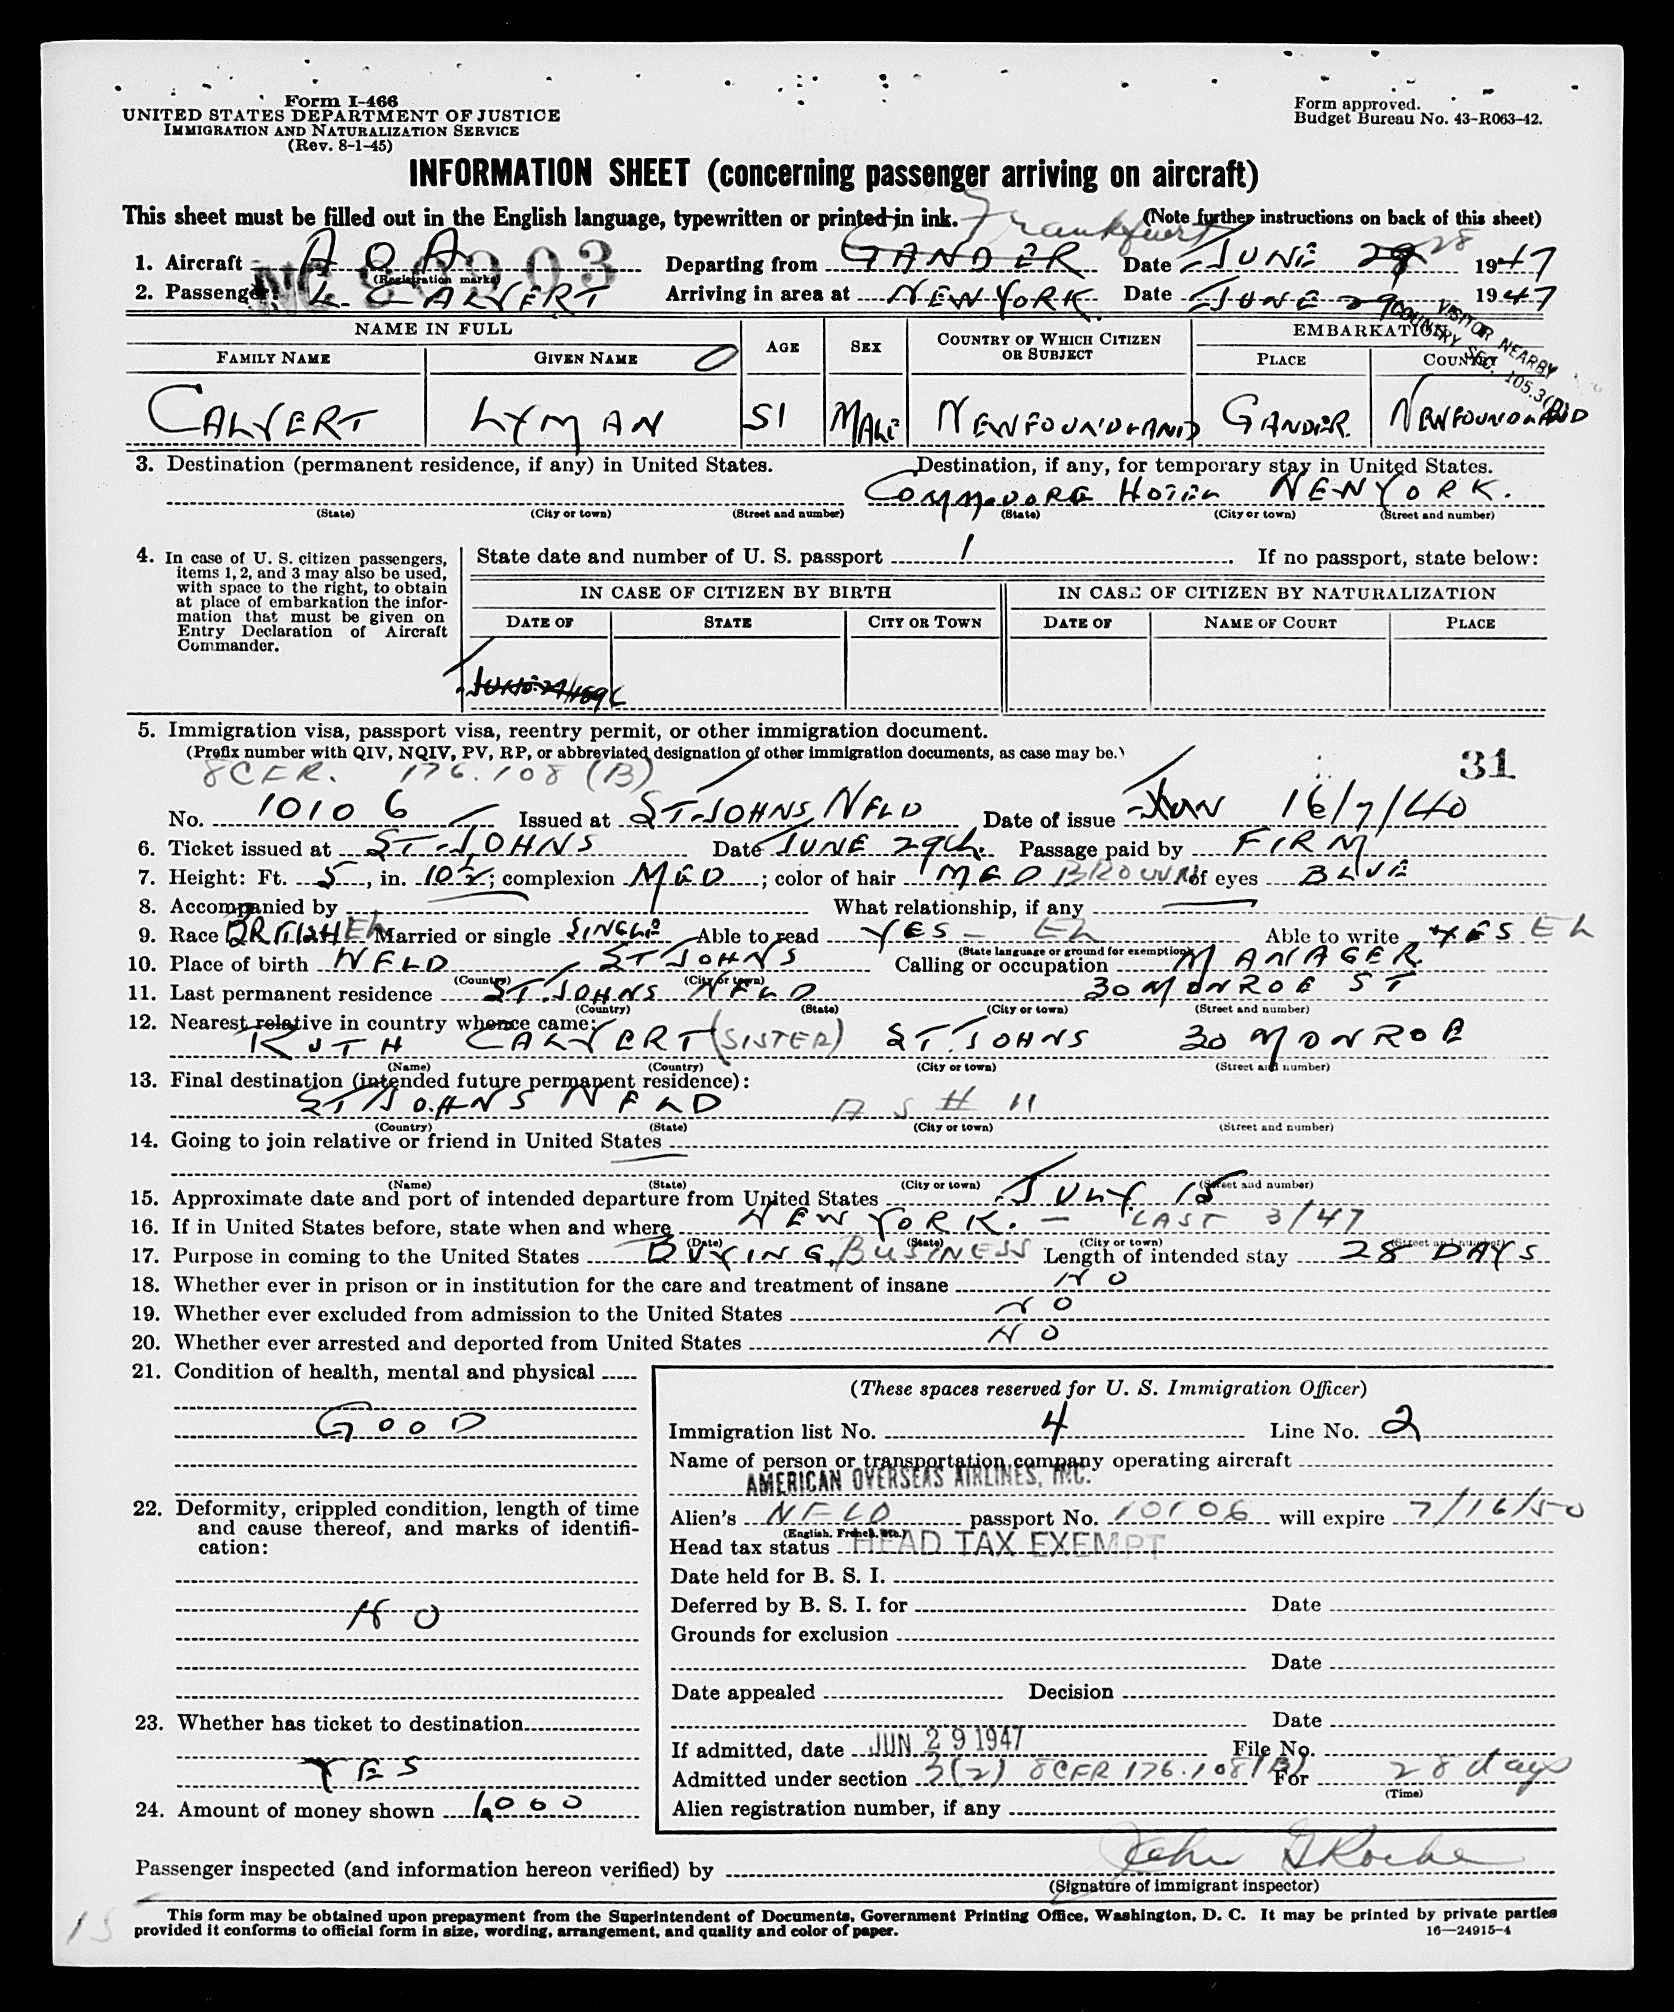 Form I-466
UNITED STATES DEPARTMENT OF JUSTICE
IMMIGRATION AND NATURALIZATION SERVICE
(Rev. 8-1-45)
Form approved.
Budget Bureau No. 43-R063-42.
INFORMATION SHEET (concerning passenger arriving on aircraft)
This sheet must be filled out in the English language, typewritten or printed in ink. (Note further instructions on back of this sheet)
Frankfurt
1. Aircraft A O A (Registration marks) Departing from GANDER Date JUNE 29 28 1947
2. Passenger L. CALVERT Arriving in area at NEW YORK. Date JUNE 29 1947
VISITOR NEARBY
COUNTRY SEC. 105.3(B)
NAME IN FULL AGE SEX COUNTRY OF WHICH CITIZEN OR SUBJECT EMBARKATION
FAMILY NAME GIVEN NAME PLACE COUNTRY
CALVERT LYMAN 51 MALE NEWFOUNDLAND GANDER. NEWFOUNDLAND
3. Destination (permanent residence, if any) in United States. Destination, if any, for temporary stay in United States.
COMMODORE HOTEL NEW YORK.
(State) (City or town) (Street and number) (State) (City or town) (Street and number)
4. In case of U. S. citizen passengers, items 1, 2, and 3 may also be used, with space to the right, to obtain at place of embarkation the information that must be given on Entry Declaration of Aircraft Commander.
State date and number of U. S. passport / . If no passport, state below:
IN CASE OF CITIZEN BY BIRTH IN CASE OF CITIZEN BY NATURALIZATION
DATE OF STATE CITY OR TOWN DATE OF NAME OF COURT PLACE
5. Immigration visa, passport visa, reentry permit, or other immigration document.
(Prefix number with QIV, NQIV, PV, RP, or abbreviated designation of other immigration documents, as case may be.)
8CFR. 176.108 (B)
31
No. 10106 Issued at ST. JOHNS, NFLD Date of issue 16/7/40
6. Ticket issued at ST. JOHNS Date JUNE 29th. Passage paid by FIRM
7. Height: Ft. 5, in. 10½; complexion MED; color of hair MED BROWN of eyes BLUE
8. Accompanied by What relationship, if any
9. Race BRITISH Married or single SINGLE Able to read YES - EL Able to write YES EL
(State language or ground for exemption)
10. Place of birth NFLD ST JOHNS Calling or occupation MANAGER.
(Country) (City or town)
11. Last permanent residence ST. JOHNS NFLD 30 MONROE ST
(Country) (State) (City or town) (Street and number)
12. Nearest relative in country whence came:
RUTH CALVERT (SISTER) ST. JOHNS 30 MONROE
(Name) (Country) (City or town) (Street and number)
13. Final destination (intended future permanent residence):
ST JOHNS NFLD AS # 11
(Country) (State) (City or town) (Street and number)
14. Going to join relative or friend in United States
(Name) (State) (City or town) (Street and number)
15. Approximate date and port of intended departure from United States JULY 15
16. If in United States before, state when and where NEW YORK. - LAST 3/47
(Date) (State) (City or town) (Street and number)
17. Purpose in coming to the United States BUYING, BUSINESS Length of intended stay 28 DAYS
18. Whether ever in prison or in institution for the care and treatment of insane NO
19. Whether ever excluded from admission to the United States NO
20. Whether ever arrested and deported from United States NO
21. Condition of health, mental and physical
GOOD
22. Deformity, crippled condition, length of time and cause thereof, and marks of identification:
NO
23. Whether has ticket to destination
YES
24. Amount of money shown 1,000
(These spaces reserved for U. S. Immigration Officer)
Immigration list No. 4 Line No. 2
Name of person or transportation company operating aircraft
AMERICAN OVERSEAS AIRLINES, INC.
Alien's NFLD passport No. 10106 will expire 7/16/50
(English, French, etc.)
Head tax status HEAD TAX EXEMPT
Date held for B. S. I.
Deferred by B. S. I. for Date
Grounds for exclusion
Date
Date appealed Decision
Date
If admitted, date JUN 29 1947 File No.
Admitted under section 3(2) 8CFR 176.108(B) For 28 days
(Time)
Alien registration number, if any
Passenger inspected (and information hereon verified) by John G Roche
(Signature of immigrant inspector)
15
This form may be obtained upon prepayment from the Superintendent of Documents, Government Printing Office, Washington, D. C. It may be printed by private parties
provided it conforms to official form in size, wording, arrangement, and quality and color of paper. 16—24915-4